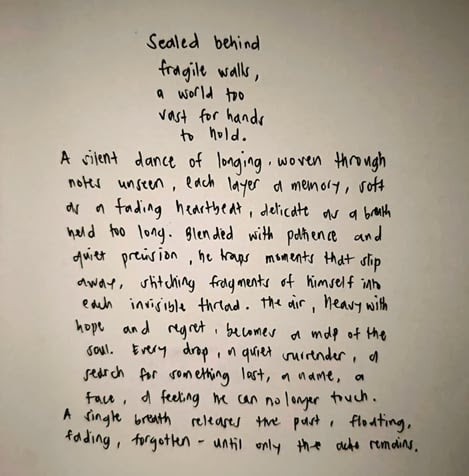 Sealed behind
fragile walls,
a world too
vast for hands
to hold.
A silent dance of longing, woven through
notes unseen, each layer a memory, soft
as a fading heartbeat, delicate as a breath
held too long. Blended with patience and
quiet precision, he traps moments that slip
away, stitching fragments of himself into
each invisible thread. The air, heavy with
hope and regret, becomes a map of the
soul. Every drop, a quiet surrender, a
search for something lost, a name, a
face, a feeling he can no longer touch.
A single breath releases the past, floating,
fading, forgotten - until only the ache remains.